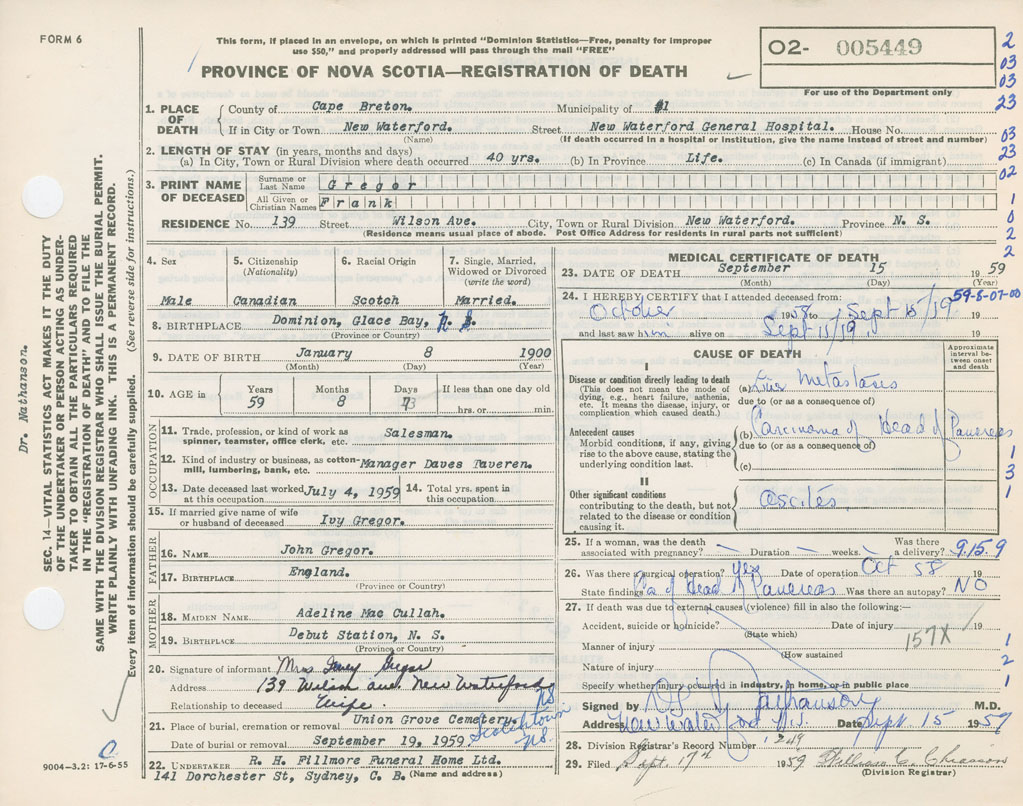 FORM 6
This form, if placed in an envelope, on which is printed "Dominion Statistics—Free, penalty for improper
use $50," and properly addressed will pass through the mail "FREE"
PROVINCE OF NOVA SCOTIA—REGISTRATION OF DEATH
O2- 005449
For use of the Department only
2
03
03
23
03
23
02
1
0
2
2
1. PLACE OF DEATH
County of Cape Breton. Municipality of #1
If in City or Town New Waterford. Street New Waterford General Hospital. House No.
(Name) (If death occurred in a hospital or institution, give the name instead of street and number)
2. LENGTH OF STAY (in years, months and days)
(a) In City, Town or Rural Division where death occurred 40 yrs. (b) In Province Life. (c) In Canada (if immigrant)
3. PRINT NAME OF DECEASED
Surname or Last Name Gregor
All Given or Christian Names Frank
RESIDENCE No. 139 Street Wilson Ave. City, Town or Rural Division New Waterford. Province N. S.
(Residence means usual place of abode. Post Office Address for residents in rural parts not sufficient)
4. Sex
Male
5. Citizenship
(Nationality)
Canadian
6. Racial Origin
Scotch
7. Single, Married,
Widowed or Divorced
(write the word)
Married.
8. BIRTHPLACE Dominion, Glace Bay, N. S.
(Province or Country)
9. DATE OF BIRTH January 8 1900
(Month) (Day) (Year)
10. AGE in
Years Months Days If less than one day old
59 8 73 hrs. or min.
OCCUPATION
11. Trade, profession or kind of work as
spinner, teamster, office clerk, etc. Salesman.
12. Kind of industry or business, as cotton-
mill, lumbering, bank, etc. Manager Daves Taveren.
13. Date deceased last worked
at this occupation July 4, 1959
14. Total yrs. spent in
this occupation
15. If married give name of wife
or husband of deceased Ivy Gregor.
FATHER
16. NAME John Gregor.
17. BIRTHPLACE England.
(Province or Country)
MOTHER
18. MAIDEN NAME Adeline Mac Cullah.
19. BIRTHPLACE Debut Station, N. S.
(Province or Country)
20. Signature of informant Mrs Gregor
Address 139 Wilson ave New Waterford NS
Relationship to deceased Wife.
21. Place of burial, cremation or removal Union Grove Cemetery. Scotchtown
Date of burial or removal September 19, 1959 NS.
22. UNDERTAKER R. H. Fillmore Funeral Home Ltd.
141 Dorchester St, Sydney, C. B. (Name and address)
MEDICAL CERTIFICATE OF DEATH
23. DATE OF DEATH September 15 1959
(Month) (Day) (Year)
24. I HEREBY CERTIFY that I attended deceased from: 59-8-07-00
October 1958 to Sept 15/19 19
and last saw him alive on Sept 15/19 19
CAUSE OF DEATH
Approximate interval between onset and death
I
Disease or condition directly leading to death
(This does not mean the mode of
dying, e.g., heart failure, asthenia,
etc. It means the disease, injury, or
complication which caused death.)
(a) Liver metastases
due to (or as a consequence of)
Antecedent causes
Morbid conditions, if any, giving
rise to the above cause, stating the
underlying condition last.
(b) Carcinoma of Head of Pancreas
due to (or as a consequence of)
(c)
1
3
1
II
Other significant conditions
contributing to the death, but not
related to the disease or condition
causing it.
ascites
25. If a woman, was the death
associated with pregnancy? — Duration — weeks. Was there
a delivery? 9.15.9
26. Was there a surgical operation? Yes Date of operation Oct 58
State findings Ca of Head of Pancreas Was there an autopsy? NO
27. If death was due to external causes (violence) fill in also the following:—
Accident, suicide or homicide? Date of injury 19
(State which)
157X
Manner of injury 1
(How sustained
Nature of injury 2
Specify whether injury occurred in industry, in home, or in public place 1
Signed by Nathanson M.D.
Address New Waterford N.S. Date Sept 15 1959
28. Division Registrar's Record Number 249
29. Filed Sept. 17th 1959 William C. Chiasson
(Division Registrar)
Dr. Nathanson.
SEC. 14—VITAL STATISTICS ACT MAKES IT THE DUTY
OF THE UNDERTAKER OR PERSON ACTING AS UNDER-
TAKER TO OBTAIN ALL THE PARTICULARS REQUIRED
IN THE "REGISTRATION OF DEATH" AND TO FILE THE
SAME WITH THE DIVISION REGISTRAR WHO SHALL ISSUE THE BURIAL PERMIT.
WRITE PLAINLY WITH UNFADING INK. THIS IS A PERMANENT RECORD.
Every item of information should be carefully supplied. (See reverse side for instructions.)
9004-3.2: 17-6-55